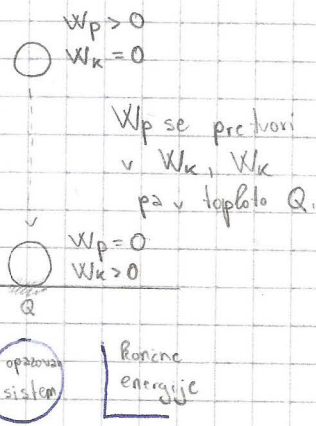 Wp > 0
Wk = 0
Wp se pretvori
v Wk, Wk
pa v toploto Q.
Wp = 0
Wk > 0
Q
opazovan
sistem
končne
energije